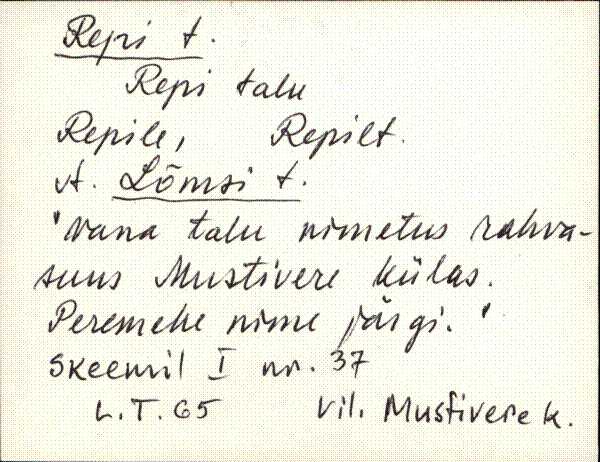 Repi t.
Repi talu
Repile, Repilt.
vt. Lõmsi t.
"Vana talu nimetus rahva-
suus Mustivere külas.
Peremehe nime järgi."
Skeemil I nr. 37
L.T. 65 Vil. Mustivere k.